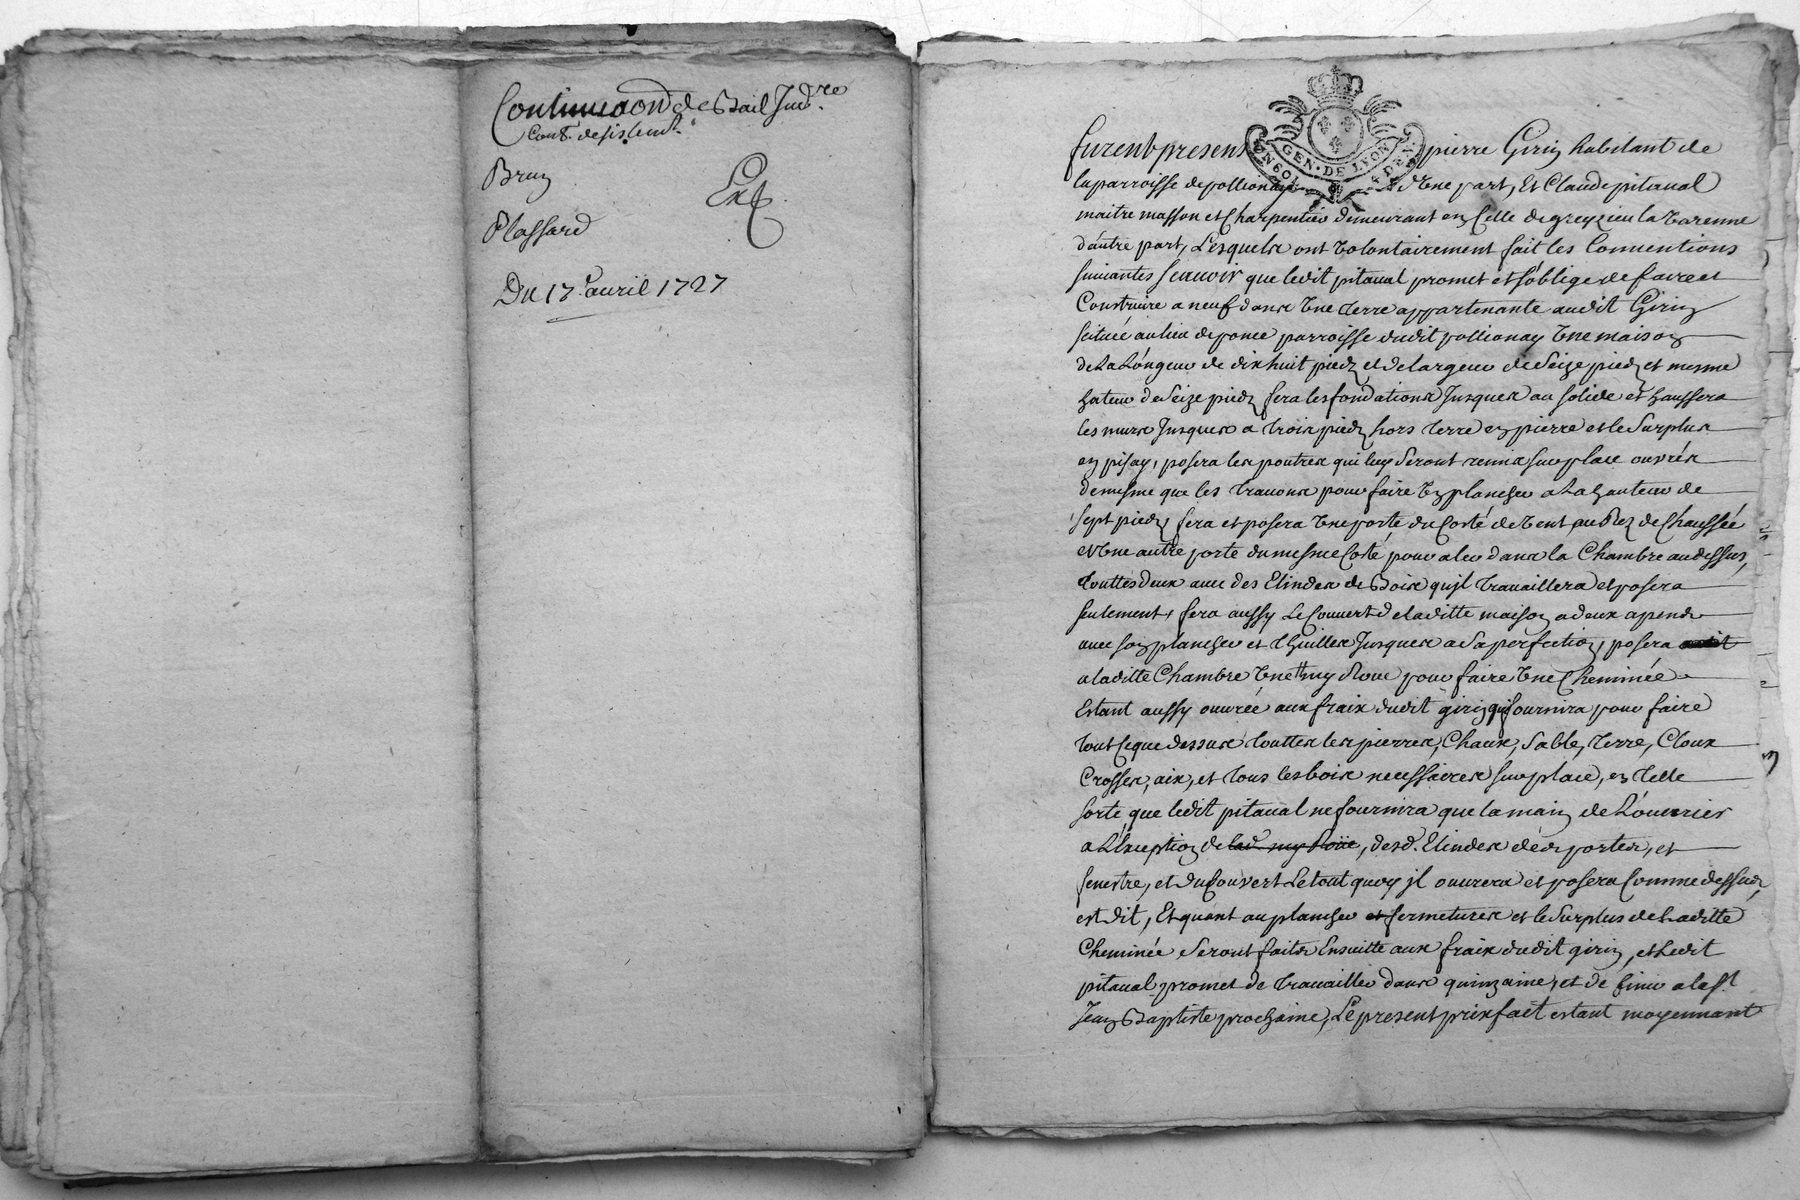 Continuaon de Bail Jud.re
Cont. desistemt.
Brun
Exp.
Plassard
Du 17e. auril 1727
GEN · DE LYON
furent presens pierre Girin habitant de
la parroisse de pollionay d'Vne part, Et Claude pitaual
maitre masson et Charpentier demeurant en Celle de greyzieu la Varenne
d'autre part, Lesquels ont Volontairement fait les Conuentions
suiuantes scauoir que ledit pitaual promet et s'oblige de faire et
Construire a neuf dans Vne terre appartenante audit Girin
scituée au lieu de ponce parroisse dudit pollionay Vne maison
de La Longeur de dix huit piedz et de largeur de Seize piedz et mesme
hateur de Seize piedz fera les fondations Jusques au solide et haussera
les murs Jusques a trois piedz hors terre en pierre et le Surplus
en pisay, posera les poutres qui luy Seront remis sur place ouvrés
de mesme que les trauons pour faire Vn plancher a La hauteur de
sept piedz, fera et posera Vne porte du Costé de Vent au Rez de Chaussée
et Vne autre porte du mesme Costé pour aler dans la Chambre au dessus,
touttes deux auec des Elindes de Bois qu'jl trauaillera et posera
seulement, fera aussy Le Couuert de laditte maison a deux apends
auec son plancher et thuilles Jusques a Sa perfection, posera
a laditte Chambre Vne my Roue pour faire Vne Cheminée
Estant aussy ouurée aux fraix dudit girin qui fournira pour faire
tout Ce que dessus touttes les pierres, Chaux, Sable, terre, Cloux
Crosses, aix, et tous les bois necessaires sur place, en telle
sorte que ledit pitaual ne fournira que la main de L'ouurier
a L'Exception de lad. my Roüe, desd. Elindes desd. portes, et
fenestre, et du Couvert Le tout quoy jl ouurera et posera Comme dessus
est dit, Et quant au plancher et fermetures et le Surplus de Laditte
Cheminée Seront faits Ensuitte aux fraix dudit girin, et Ledit
pitaual promet de trauailler dans quinzaine, et de finir a la St
Jean Baptiste prochaine, Le present prixfait estant moyennant